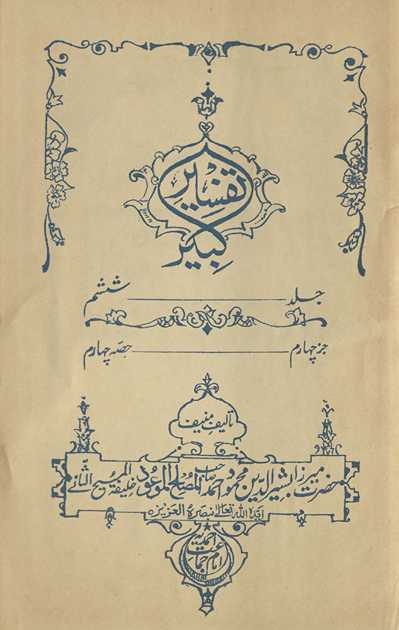 تفسیر
کبیر
جلد ششم
جز چہارم حصہ چہارم
تالیف منیف
حضرت میرزا بشیر الدین محمود احمد صاحب المصلح الموعود خلیفۃ المسیح الثانی
ایدہ اللہ تعالیٰ بنصرہ العزیز
امام جماعت احمدیہ